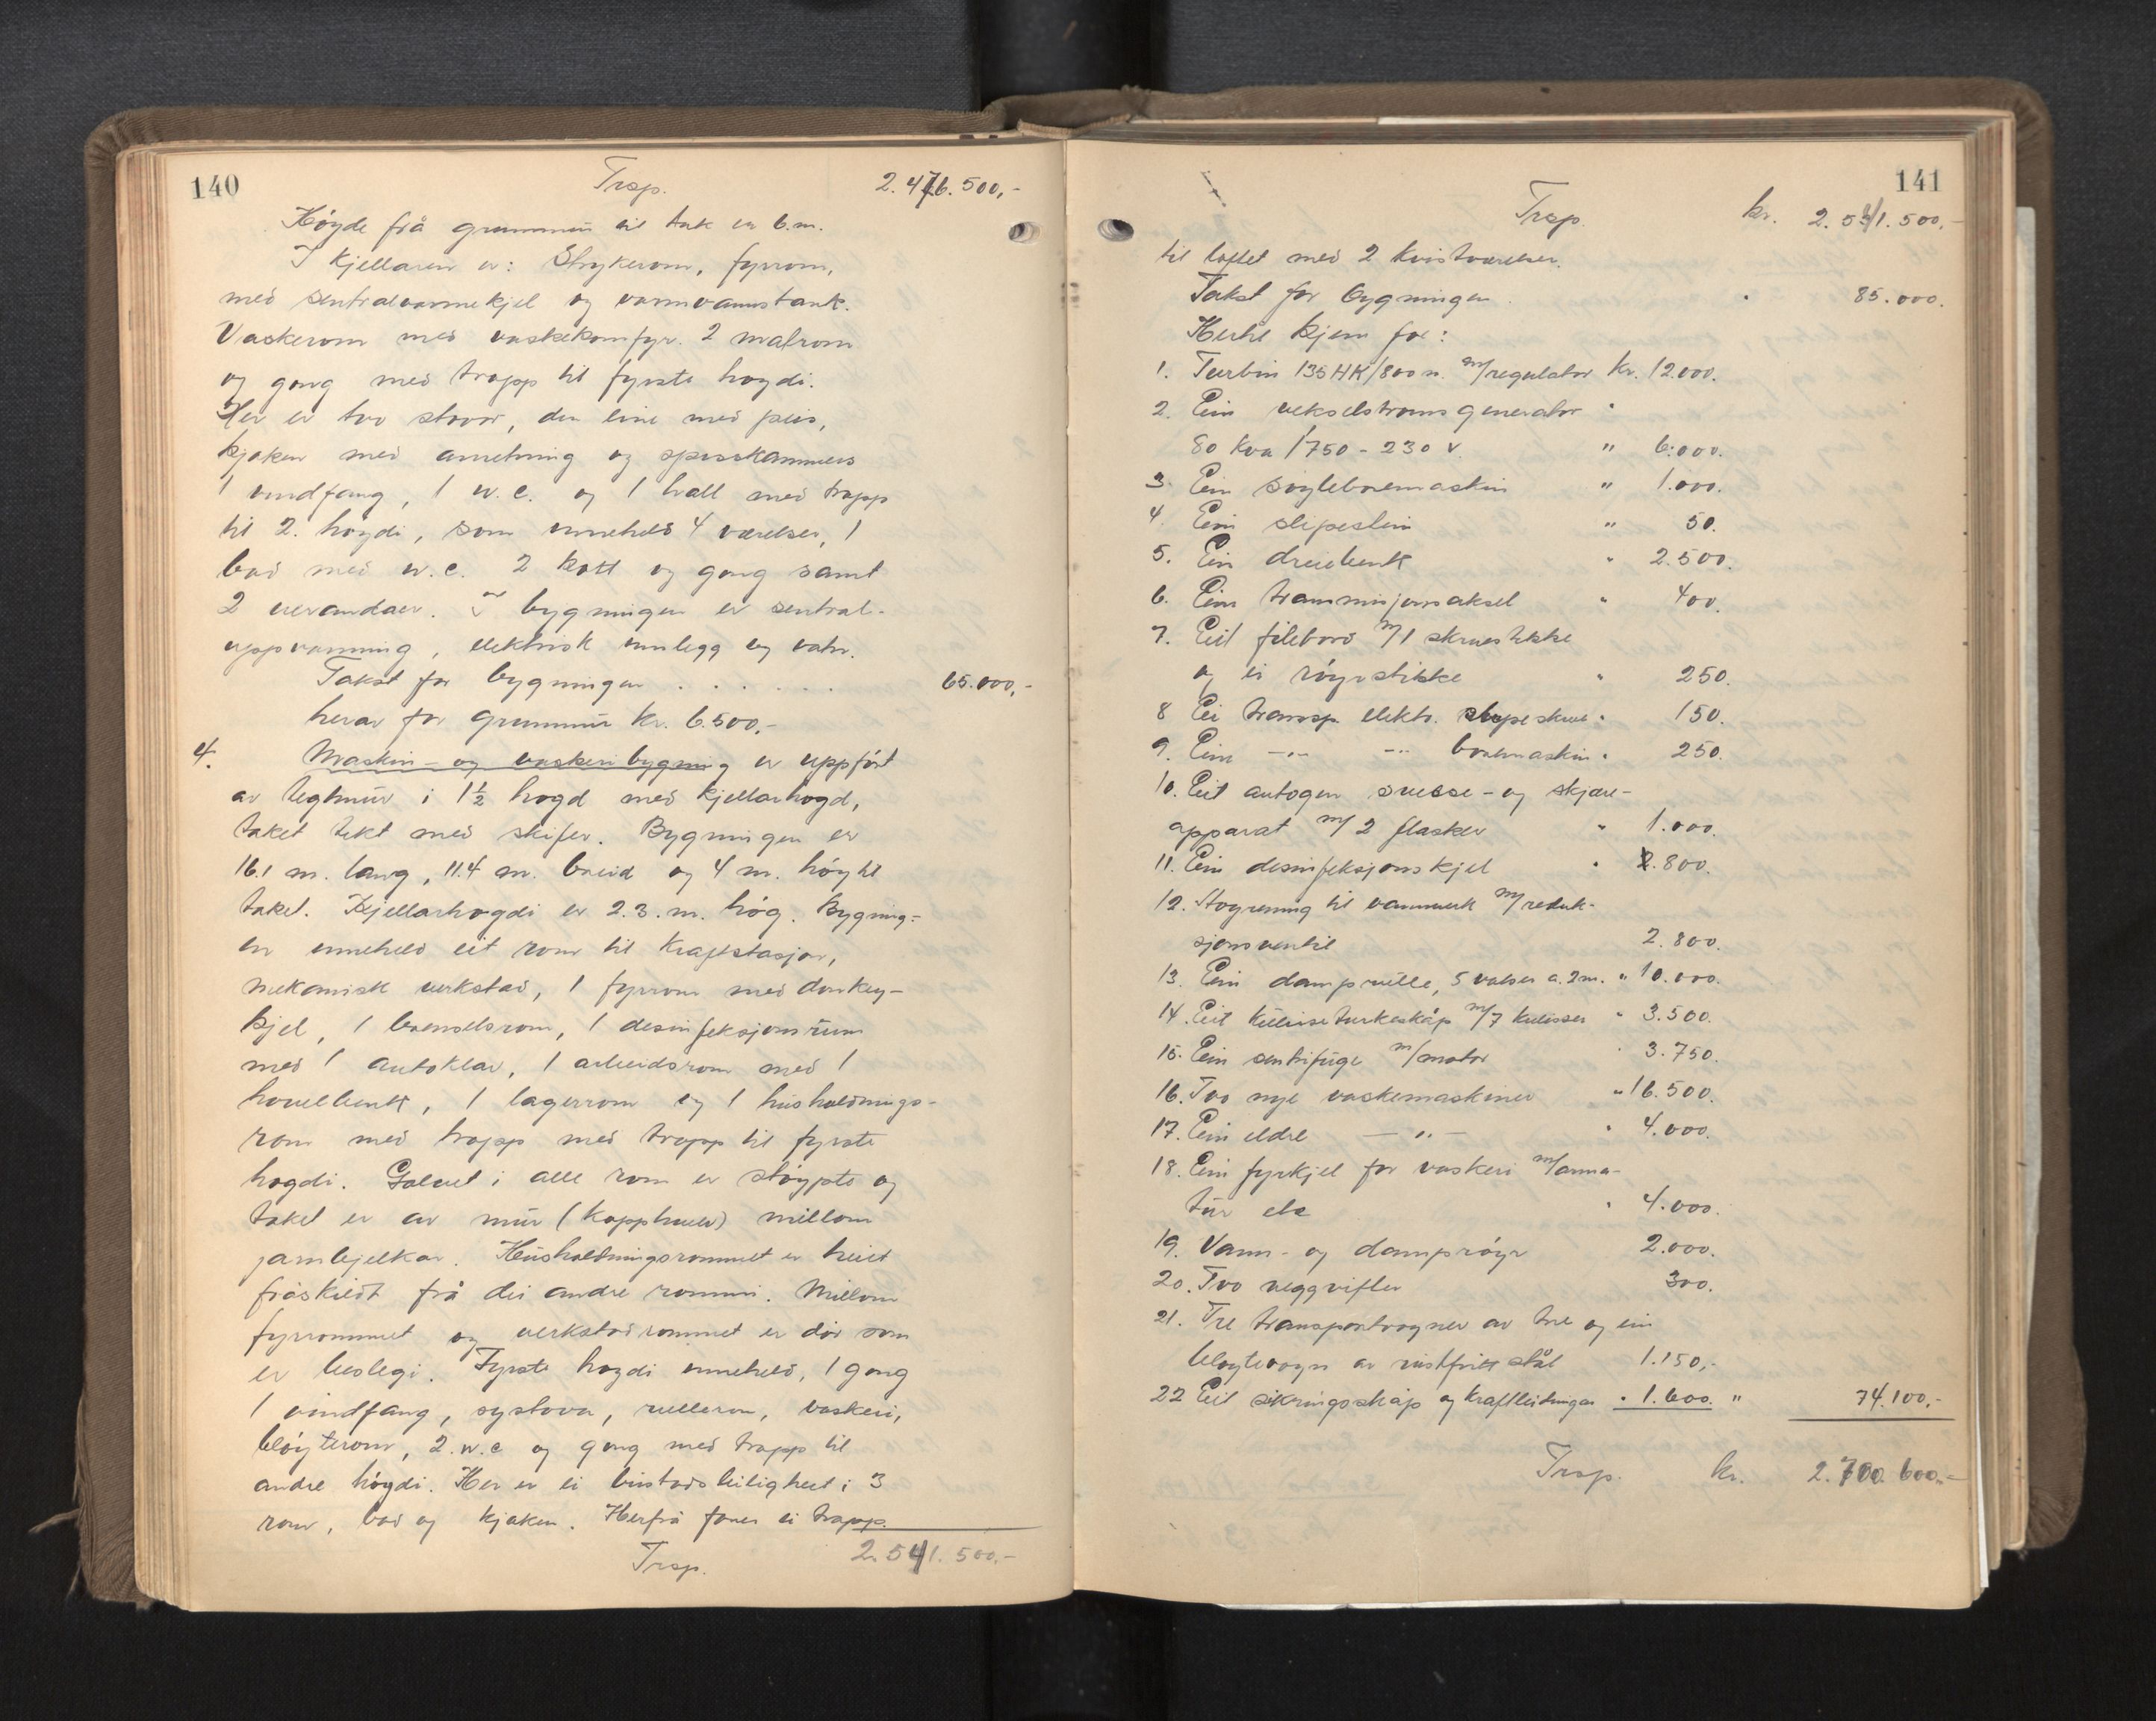 140
Trsp. 2.476.500,-
Høyde frå grunnmur til tak er 6.m.
I kjellaren er: Strykerom, fyrrom,
med sentralvarmekjel og varmvannstank.
Vaskerom med vaskekomfyr. 2 matrom
og gang med trapp til fyrste høgdi.
Her er tvo stovor, den eine med peis,
kjøken med anretning og spisskammers
1 vindfang, 1 w.c. og 1 hall med trapp
til 2. høgdi, som inneheld 4 værelser, 1
bad med w.c. 2 kott og gang samt
2 verandaer. bygningen er sentral-
uppvarming, elektrisk innlegg og vatn.
Takst for bygningen . . . . . . 65.000,-
herav for grunnmur kr. 6.500,-
4. Maskin- og vaskeribygning er uppført
av teglmur i 1½ høgd med kjellarhøgd,
taket tekt med skifer. Bygningen er
16.1 m. lang, 11.4 m. breid og 4 m. høg til
taket. Kjellarhøgdi er 2.3. m. høg. Bygning-
en inneheld eit rom til kraftstasjon,
mekanisk verkstad, 1 fyrrom med donkey-
kjel, 1 brenselsrom, 1 desinfeksjonsrum
med 1 autoklav, 1 arbeidsrom med 1
hovelbenk, 1 lagerrom og 1 husholdnings-
rom med trapp med trapp til fyrste
høgdi. Golvet i alle rom er støypte og
taket er av mur (kapphvelv) millom
jarnbjelkar. Husholdningsrommet er heilt
fråskildt frå dei andre rommi. Millom
fyrrommet og verkstadrommet er dør som
er beslegi. Fyrste høgdi inneheld, 1 gang
1 vindfang, systova, rullerom, vaskeri,
bløyterom, 2. w.c og gang med trapp til
andre høgdi. Her er ei bustadsleilighet i 3
rom, bad og kjøken. Herfrå fører ei trapp
Trsp. 2.541.500.-
141
Trsp. kr. 2.541.500,-
til loftet med 2 kvistværelser.
Takst for bygningen . 85.000.
Hertil kjem for:
1. Turbin 135 HK/800 n. m/regulator kr. 12.000.
2. Ein vekselstrøms generator
80 Kva /750 - 230 V. " 6.000.
3. Ein søyleboremaskin " 1.000.
4. Ein slipestein " 50.
5. Ein dreiebenk " 2.500.
6. Ein transmisjonsaksel " 400.
7. Eit filebord m/1 skruestikke
og ei røyrstikke " 250.
8 Ei transp. elektr. slipeskive " 150.
9. Ein -"- -"- boremaskin " 250.
10. Eit autogen sveise- og skjære-
apparat m/ 2 flasker " 1.000.
11. Ein desinfeksjonskjel " .800.
12. til vannverk m/reduk-
sjonsventil 2.800.
13. Ein damprulle, 5 valser a. 2 m. " 10.000.
14. Eit kulisseturkeskåp m/7 kulisser " 3.500.
15. Ein sentrifuge m/motor 3.750.
16. Tvo nye vaskemaskiner " 16.500.
17. Ein eldre -"- " 4.000.
18. Ein fyrkjel for vaskeri m/arma-
tur etc " 4.000.
19. Vann- og damprøyr 2.000.
20. Tvo veggvifter 300.
21. Tre transportvogner av tre og ein
bløytevogn av rustfritt stål 1.150,-
22 Eit sikringsskåp og kraftleidningar " 1.600. " 74.100,-
Trsp. kr. 2.700.600,-